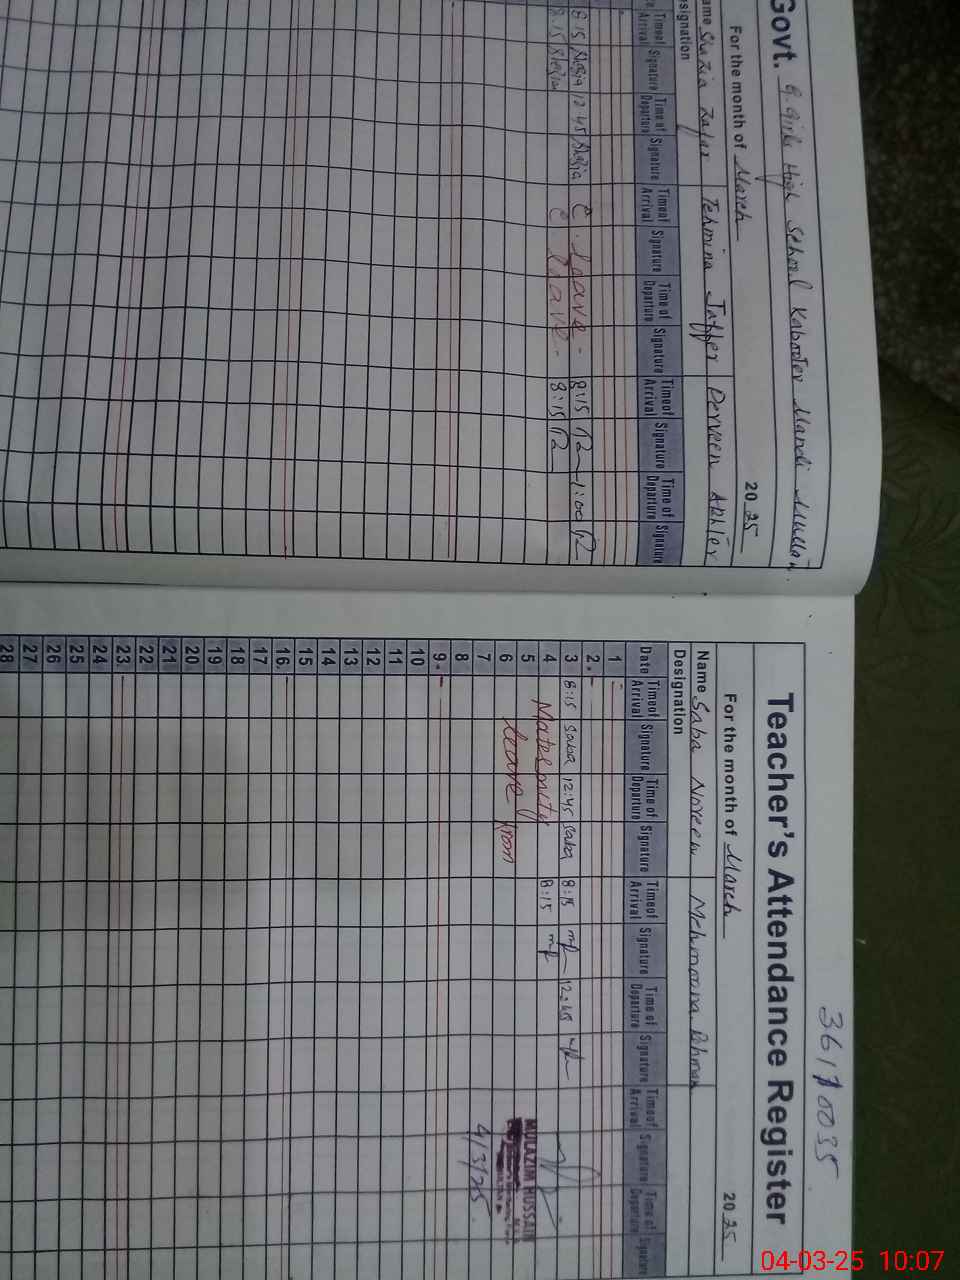 Govt. G. Girls High School Kabooter Mandi Multan.
For the month of March 2025
Name Shazia Zafar Tehmina Jaffer Perveen Akhter
Designation
Time of Arrival Signature Time of Departure Signature Time of Arrival Signature Time of Departure Signature Time of Arrival Signature Time of Departure Signature
8:15 Shazia 12:45 Shazia C. Leave - 8:15 1:00
8:15 Shazia C Leave - 8:15
36170035
Teacher's Attendance Register
For the month of March 2025
Name Saba Noreen Mehmoona Rehman
Designation
Date Time of Arrival Signature Time of Departure Signature Time of Arrival Signature Time of Departure Signature Time of Arrival Signature Time of Departure Signature
1
2
3 8:15 Saba 12:45 Saba 8:15 12:45
4 Maternity 8:15
5 MULAZIM HUSSAIN
6 leave from
7 4/3/25
8
9
10
11
12
13
14
15
16
17
18
19
20
21
22
23
24
25
26
27
28
04-03-25 10:07